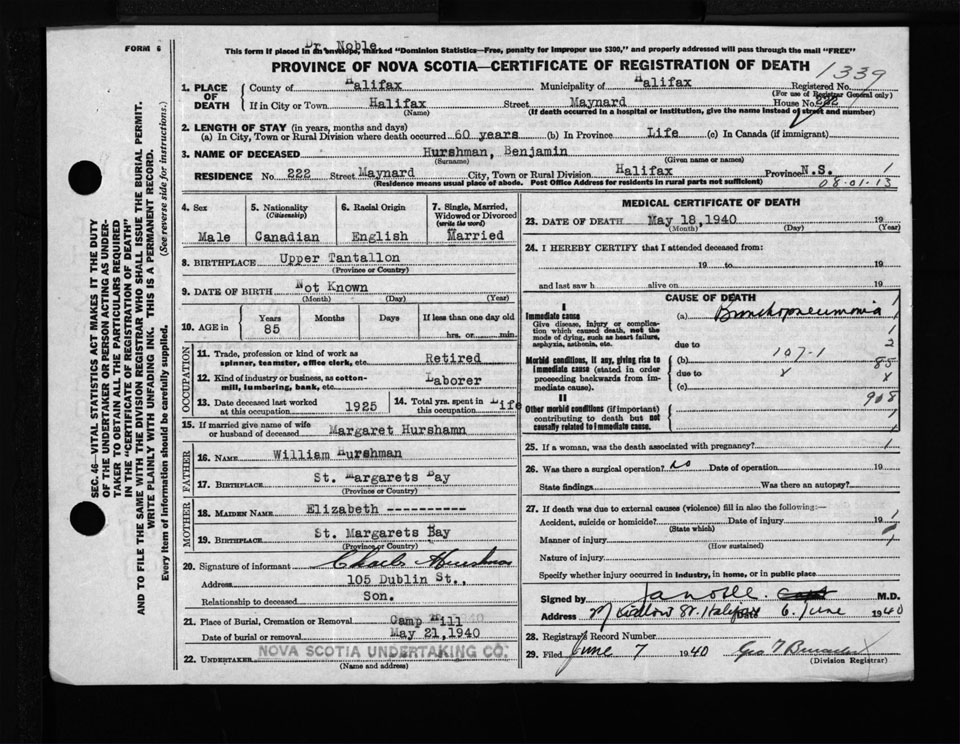 Dr. Noble
FORM 6
This form if placed in an envelope, marked "Dominion Statistics—Free, penalty for improper use $300," and properly addressed will pass through the mail "FREE"
PROVINCE OF NOVA SCOTIA—CERTIFICATE OF REGISTRATION OF DEATH
1339
1. PLACE OF DEATH
County of Halifax Municipality of Halifax Registered No.
(For use of Registrar General only)
If in City or Town Halifax Street Maynard House No. 222
(Name) (If death occurred in a hospital or institution, give the name instead of street and number)
2. LENGTH OF STAY (in years, months and days)
(a) In City, Town or Rural Division where death occurred 60 years (b) In Province Life (c) In Canada (if immigrant)
3. NAME OF DECEASED Hurshman, Benjamin
(Surname) (Given name or names)
RESIDENCE No. 222 Street Maynard City, Town or Rural Division Halifax Province N.S. 1
(Residence means usual place of abode. Post Office Address for residents in rural parts not sufficient) 08-01-13
4. Sex
Male
5. Nationality
(Citizenship)
Canadian
6. Racial Origin
English
7. Single, Married, Widowed or Divorced
(write the word)
Married
8. BIRTHPLACE Upper Tantallon
(Province or Country)
9. DATE OF BIRTH Not Known
(Month) (Day) (Year)
10. AGE in
Years Months Days If less than one day old
85 hrs. or min.
OCCUPATION
11. Trade, profession or kind of work as spinner, teamster, office clerk, etc. Retired
12. Kind of industry or business, as cotton-mill, lumbering, bank, etc. Laborer
13. Date deceased last worked at this occupation 1925
14. Total yrs. spent in this occupation Life
15. If married give name of wife or husband of deceased Margaret Hurshamn
FATHER
16. NAME William Hurshman
17. BIRTHPLACE St. Margarets Bay
(Province or Country)
MOTHER
18. MAIDEN NAME Elizabeth ----------
19. BIRTHPLACE St. Margarets Bay
(Province or Country)
20. Signature of informant Charls Hurshman
Address 105 Dublin St.,
Relationship to deceased Son.
21. Place of Burial, Cremation or Removal Camp Hill
Date of burial or removal May 21, 1940
22. UNDERTAKER NOVA SCOTIA UNDERTAKING CO.
(Name and address)
MEDICAL CERTIFICATE OF DEATH
23. DATE OF DEATH May 18, 1940 19
(Month) (Day) (Year)
24. I HEREBY CERTIFY that I attended deceased from:
19 to 19
and last saw h alive on 19
CAUSE OF DEATH
I
Immediate cause
Give disease, injury or complication which caused death, not the mode of dying, such as heart failure, asphyxia, asthenia, etc.
(a) Bronchopneumonia 1
1
due to 2
Morbid conditions, if any, giving rise to immediate cause (stated in order proceeding backwards from immediate cause)
(b) 107-1 85
due to x x
(c)
II
Other morbid conditions (if important) contributing to death but not causally related to immediate cause.
908
1
25. If a woman, was the death associated with pregnancy? 1
26. Was there a surgical operation? no Date of operation 19
State findings Was there an autopsy?
27. If death was due to external causes (violence) fill in also the following:—
Accident, suicide or homicide? Date of injury 19 1
(State which)
Manner of injury 9
(How sustained)
Nature of injury
Specify whether injury occurred in industry, in home, or in public place
Signed by M.D.
Address Halifax Date 6. June 1940
28. Registrar's Record Number
29. Filed June 7 1940 Geo
(Division Registrar)
SEC. 46—VITAL STATISTICS ACT MAKES IT THE DUTY
OF THE UNDERTAKER OR PERSON ACTING AS UNDER-
TAKER TO OBTAIN ALL THE PARTICULARS REQUIRED
IN THE "CERTIFICATE OF REGISTRATION OF DEATH"
AND TO FILE THE SAME WITH THE DIVISION REGISTRAR WHO SHALL ISSUE THE BURIAL PERMIT.
WRITE PLAINLY WITH UNFADING INK. THIS IS A PERMANENT RECORD.
Every item of information should be carefully supplied. (See reverse side for instructions.)